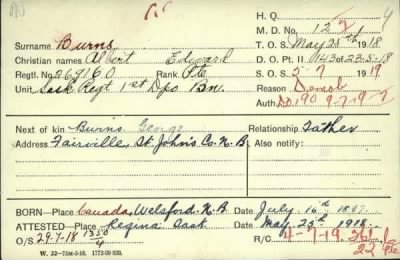 H. Q.
M. D. No. 12
Surname Burns
T. O. S. May 25th 1918
Christian names Albert Edward
D. O. Pt II 143 of 23-5-18
Regtl. No. 269160 Rank Pte
S. O. S. 5-7 1919
Unit Sask Regt 1st Dpo Bn.
Reason Demob
Auth. DO 190 9-7-19
Next of kin Burns George
Relationship Father
Address Fairville, St. John's Co. N.B
Also notify:
BORN Place Canada, Welsford N.B Date July 16th
ATTESTED Place Regina Sask Date May 25th 1918
O/S 29-7-18 1350/4
R/C 4-7-19
W. 22—75M-5-18. 1772-39 839.